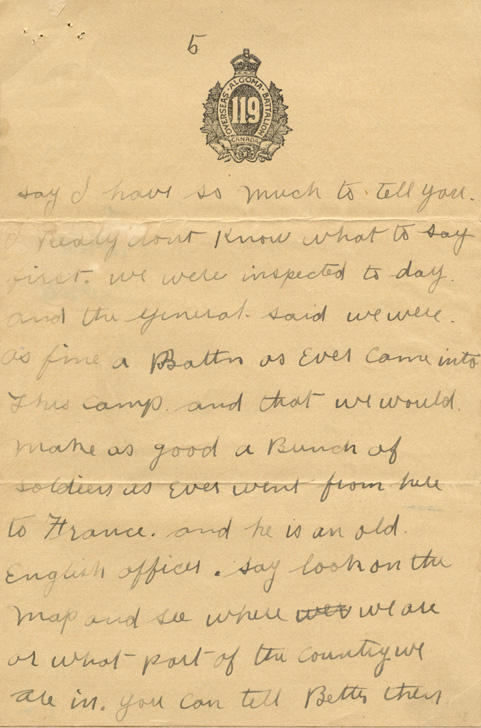 5
OVERSEAS · ALGOMA · BATTALION
119
CANADA
say I have so much to tell you.
I Realy dont Know what to say
first. we were inspected to day.
and the General. said we were.
as fine a Battn as Ever Came into
This camp. and that we would.
make as good a Bunch of
soldiers as Ever went from here
to France. and he is an old.
English officer. say look on the
map and see where wer we are
or what part of the country we
are in. you can tell Better then